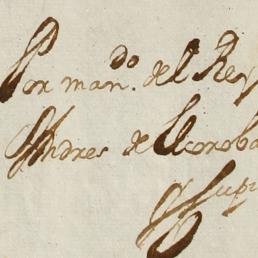 Por man.do del Rey
Andres de Elcoroba